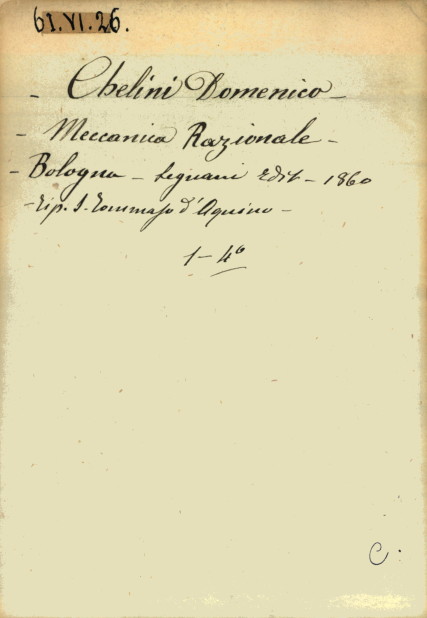 61.VI.26.
- Chelini Domenico -
- Meccanica Razionale -
- Bologna - Legnani Edit - 1860
- Tip. S. Tommaso d'Aquino -
1 - 4°
C.